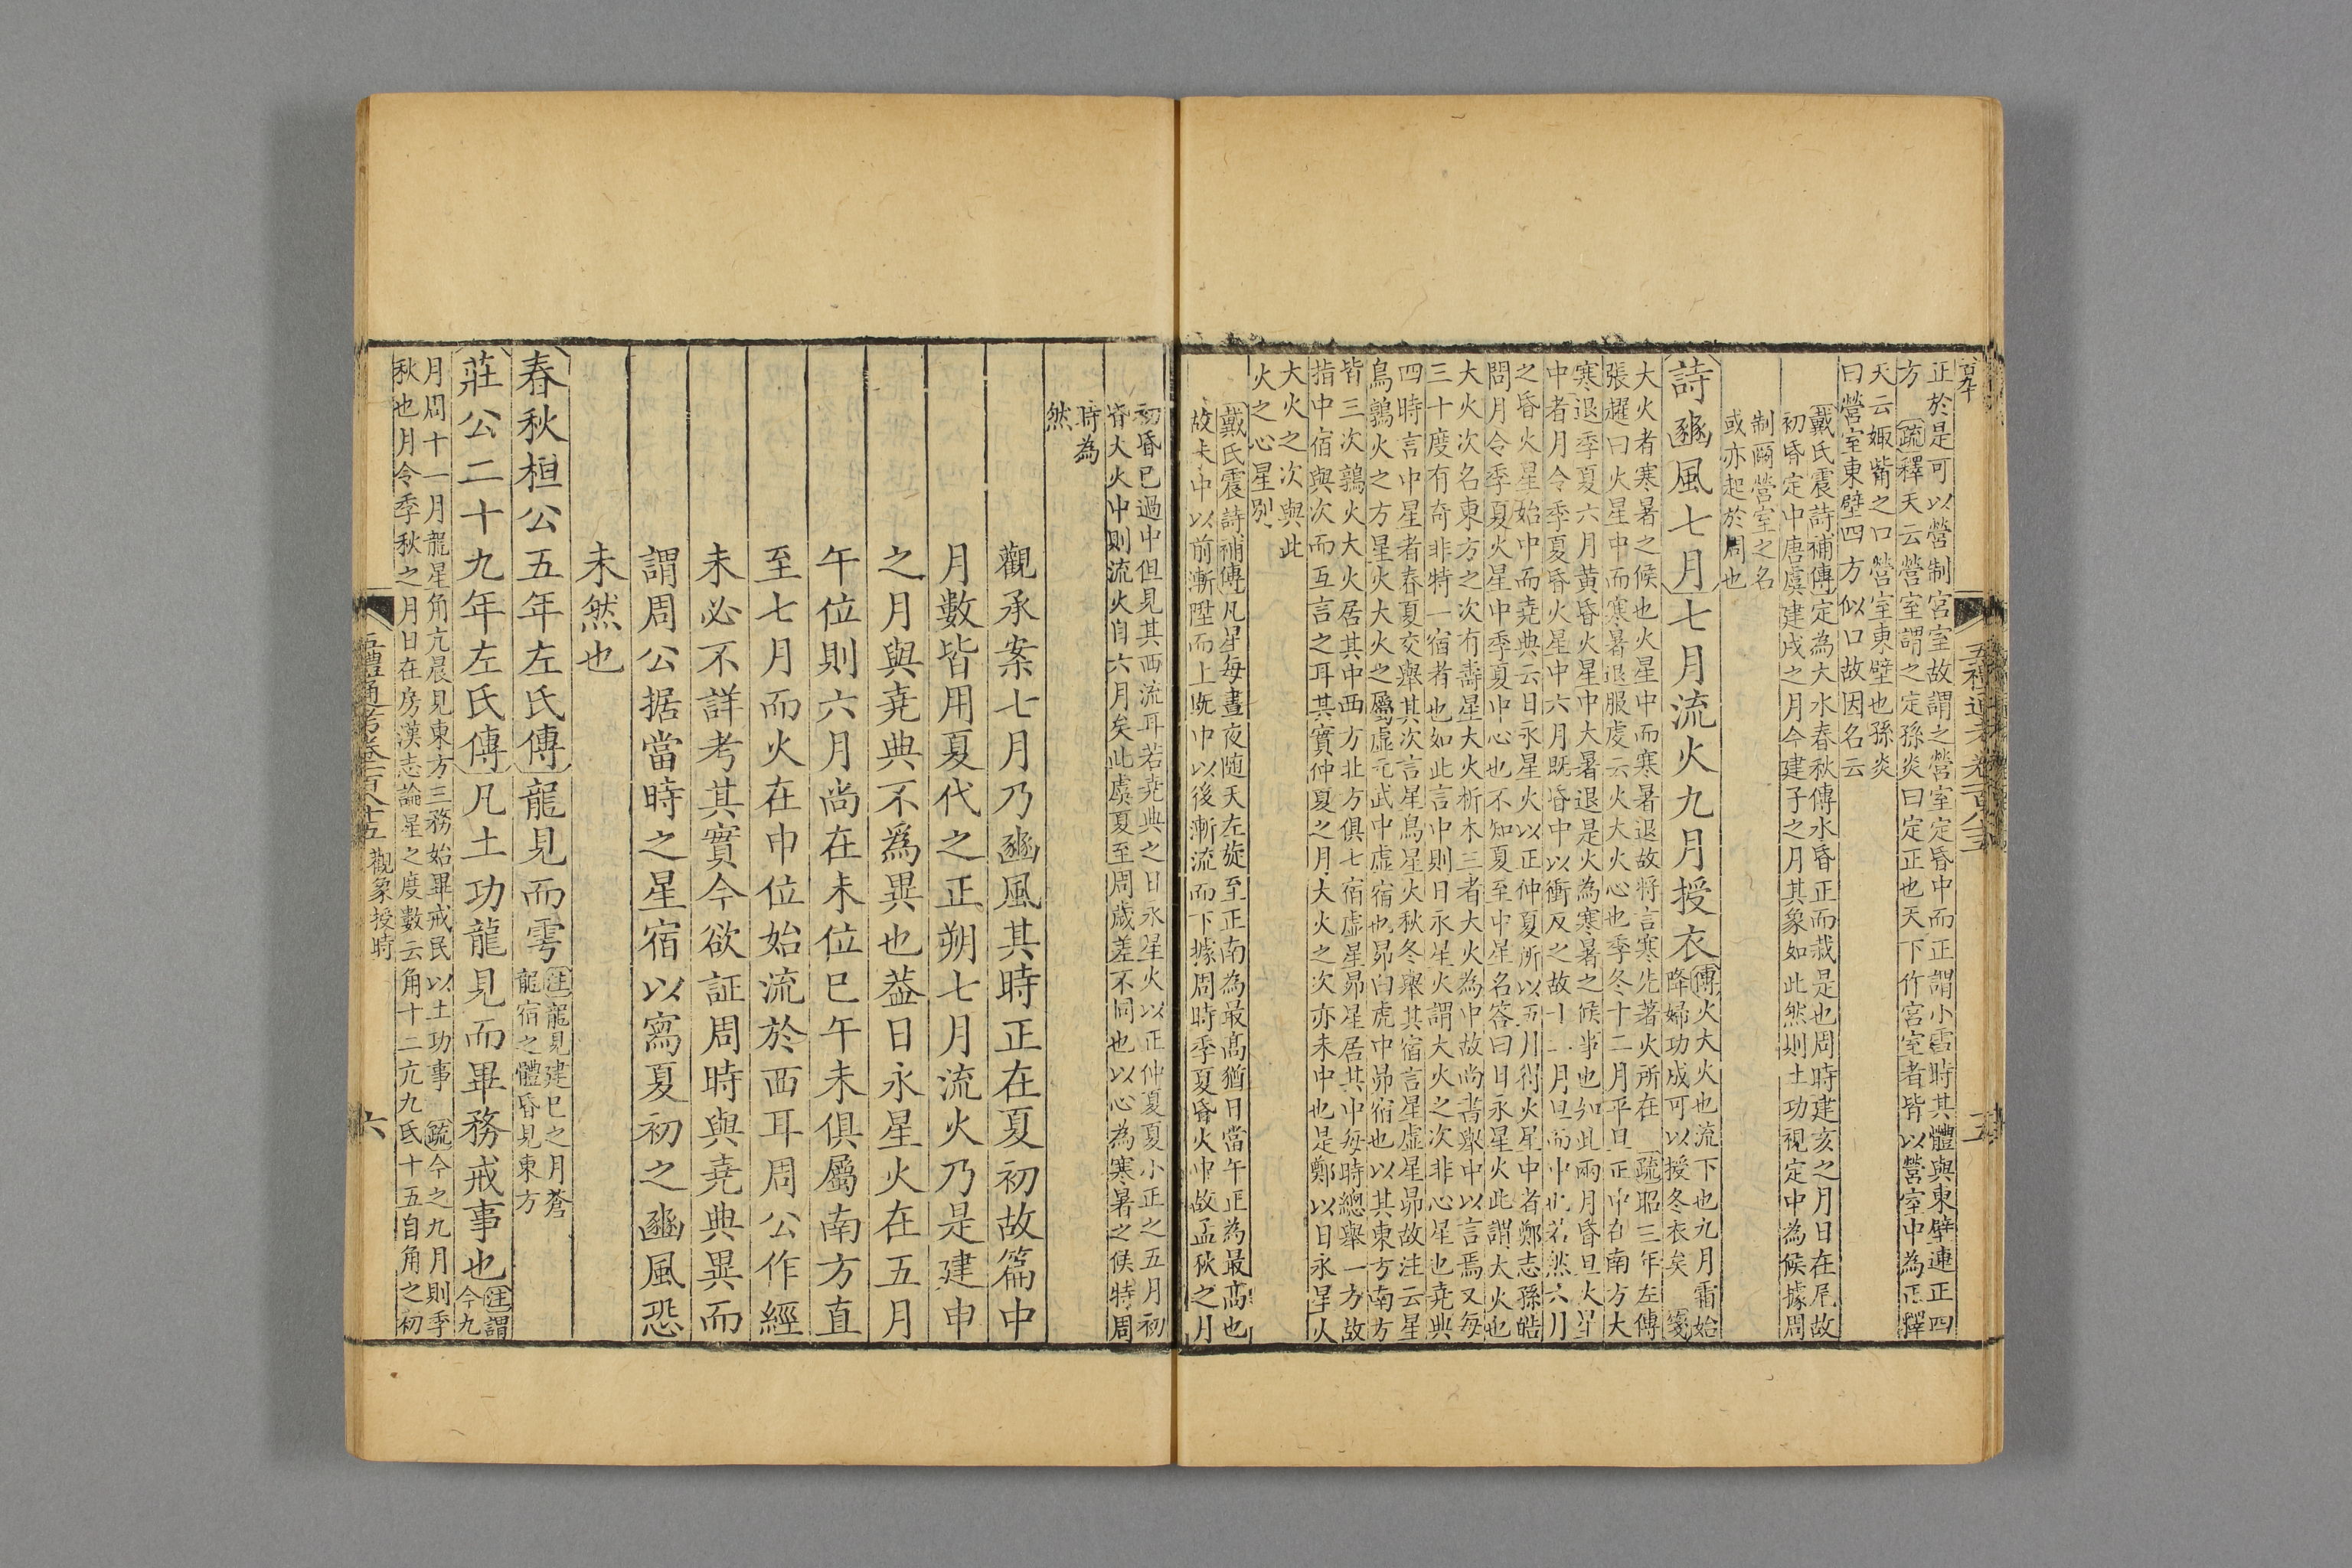 百九十
正於是可以營制宮室故謂之營室定昏中而正謂小雪時其體與東壁連正四
方 疏釋天云營室謂之定孫炎曰定正也天下作宮室者皆以營室中為正釋
天云娵觜之口營室東壁也孫炎
曰營室東壁四方似口故因名云
戴氏震詩補傳定為大水春秋傳水昏正而栽是也周時建亥之月日在尾故
初昏定中唐虞建戌之月今建子之月其象如此然則土功視定中為候據周
制爾營室之名
或亦起於周也
詩豳風七月七月流火九月授衣
傳火大火也流下也九月霜始
降婦功成可以授冬衣矣 箋
大火者寒暑之候也火星中而寒暑退故將言寒先著火所在 疏昭三年左傳
張趯曰火星中而寒暑退服虔云火大火心也季冬十二月平旦正中在南方大
寒退季夏六月黃昏火星中大暑退是火為寒暑之候事也如此兩月昏旦火星
中者月令季夏昏火星中六月既昏中以衝反之故十二月旦而中也若然六月
之昏火星始中而堯典云日永星火以正仲夏所以五月得火星中者鄭志孫皓
問月令季夏火星中季夏中心也不知夏至中星名答曰日永星火此謂大火也
大火次名東方之次有壽星大火析木三者大火為中故尚書舉中以言焉又每
三十度有奇非特一宿者也如此言中則日永星火謂大火之次非心星也堯典
四時言中星者春夏交舉其次言星鳥星火秋冬舉其宿言星虛星昴故注云星
鳥鶉火之方星火大火之屬虛元武中虛宿也昴白虎中昴宿也以其東方南方
皆三次鶉火大火居其中西方北方俱七宿虛星昴星居其中每時總舉一方故
指中宿與次而互言之耳其實仲夏之月大火之次亦未中也是鄭以日永星火
大火之次與此
火之心星別
戴氏震詩補傳凡星每晝夜隨天左旋至正南為最高猶日當午正為最高也
故未中以前漸陞而上既中以後漸流而下據周時季夏昏火中故孟秋之月
初昏已過中但見其西流耳若堯典之日永星火以正仲夏夏小正之五月初
昏大火中則流火自六月矣此虞夏至周歲差不同也以心為寒暑之候特周
時為
然
觀承案七月乃豳風其時正在夏初故篇中
月數皆用夏代之正朔七月流火乃是建申
之月與堯典不爲異也葢日永星火在五月
午位則六月尚在未位巳午未俱屬南方直
至七月而火在申位始流於西耳周公作經
未必不詳考其實今欲証周時與堯典異而
謂周公据當時之星宿以寫夏初之豳風恐
未然也
春秋桓公五年左氏傳龍見而雩
注龍見建巳之月蒼
龍宿之體昏見東方
莊公二十九年左氏傳凡土功龍見而畢務戒事也
注謂
今九
月周十一月龍星角亢晨見東方三務始畢戒民以土功事 疏今之九月則季
秋也月令季秋之月日在房漢志論星之度數云角十二亢九氐十五自角之初
五禮通考卷一百八十五 觀象授時
六